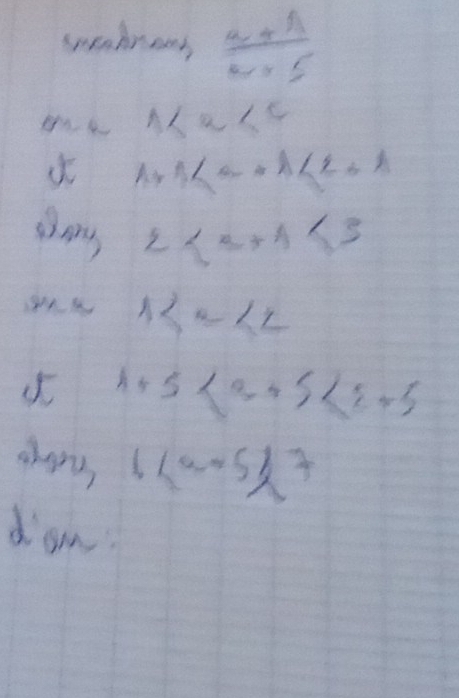 encadrons a+1/a+5
on a 1<a<2
et 1+1<a+1<2+1
donc 2<a+1<3
on a 1<a<2
et 1+5<a+5<2+5
donc 6<a+5<7
d'où :